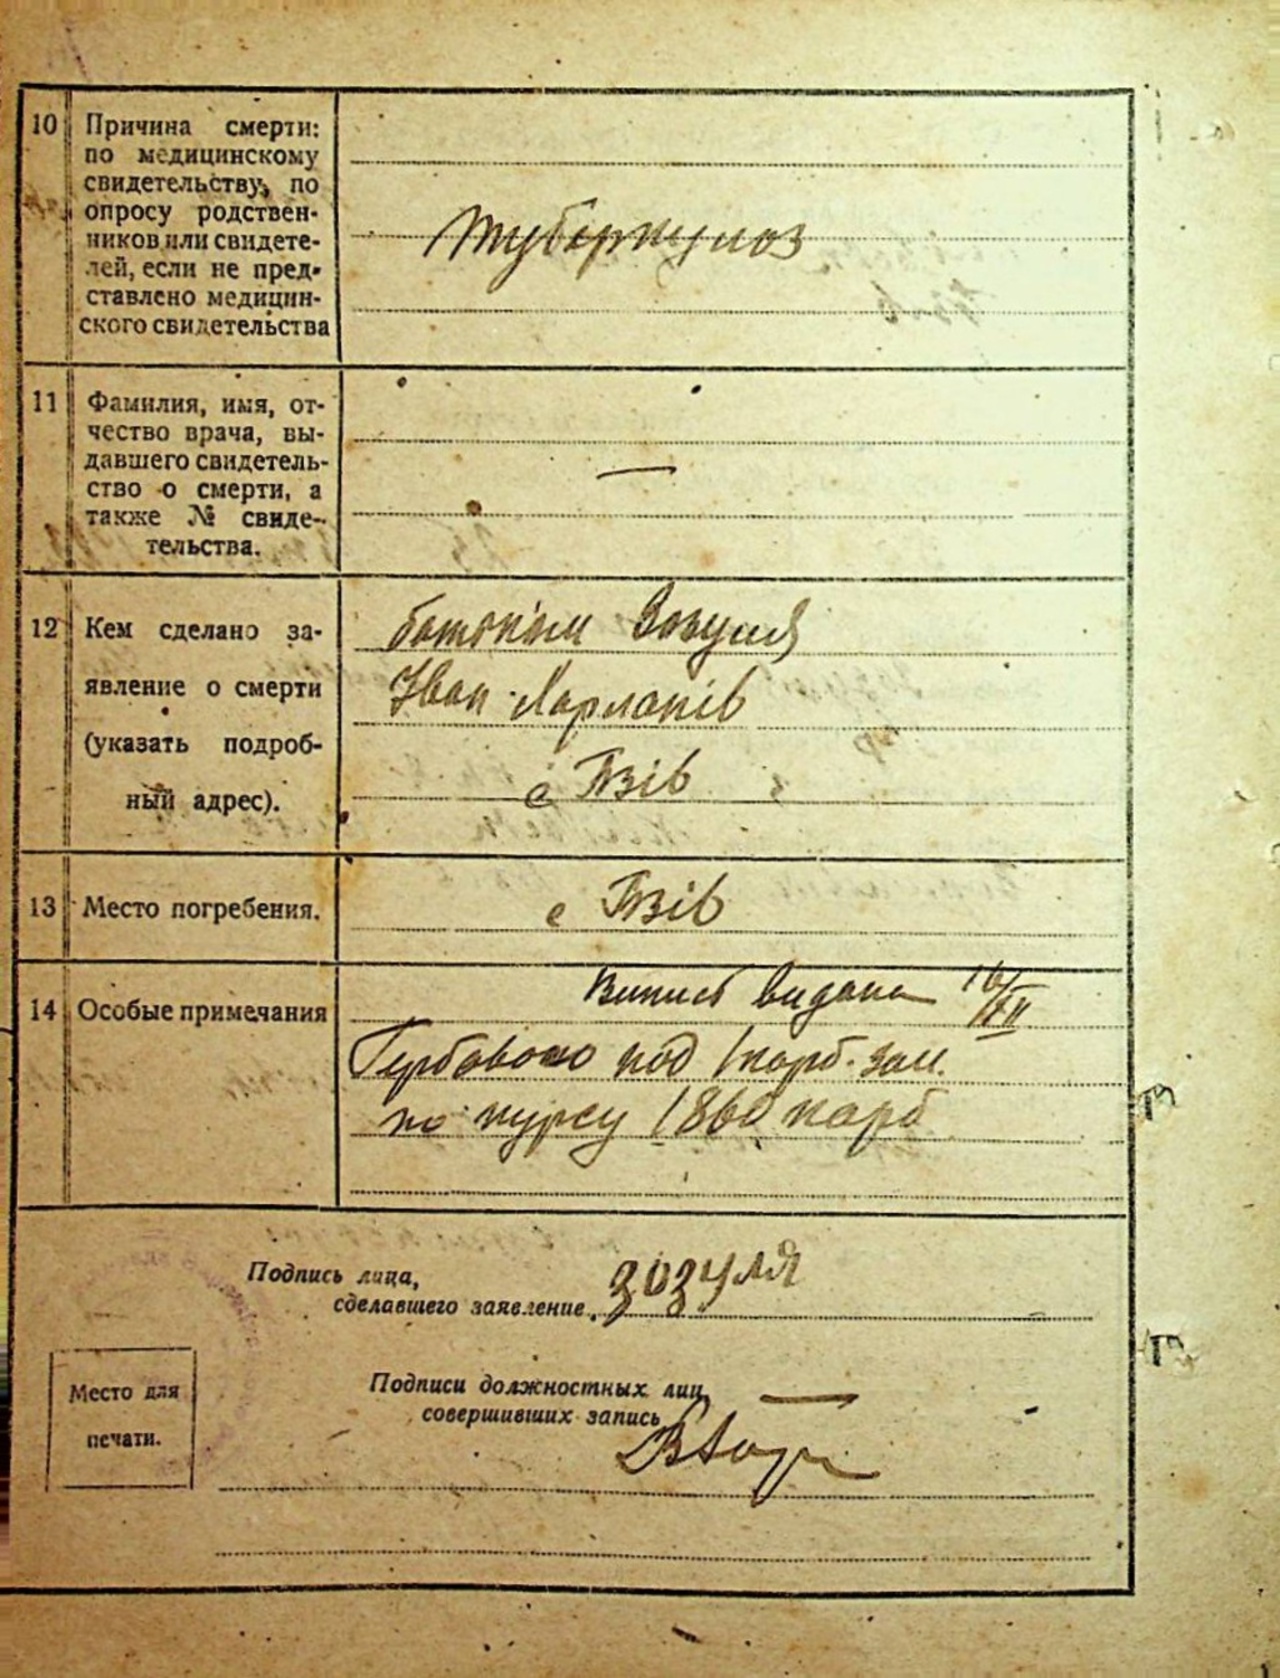 10 Причина смерти:
по медицинскому
свидетельству, по
опросу родствен-
ников или свидете-
лей, если не пред-
ставлено медицин-
ского свидетельства
Туберкулоз
11 Фамилия, имя, от-
чество врача, вы-
давшего свидетель-
ство о смерти, а
также № свиде-
тельства.
—
12 Кем сделано за-
явление о смерти
(указать подроб-
ный адрес).
батьком Зозуля
Іван Харлапів
с
13 Место погребения.
с
14 Особые примечания
Випись видана
Гербового под 1 карб. зол.
по курсу 1860 карб
Подпись лица,
сделавшего заявление. Зозуля
Подписи должностных лиц, —
совершивших запись
Место для
печати.